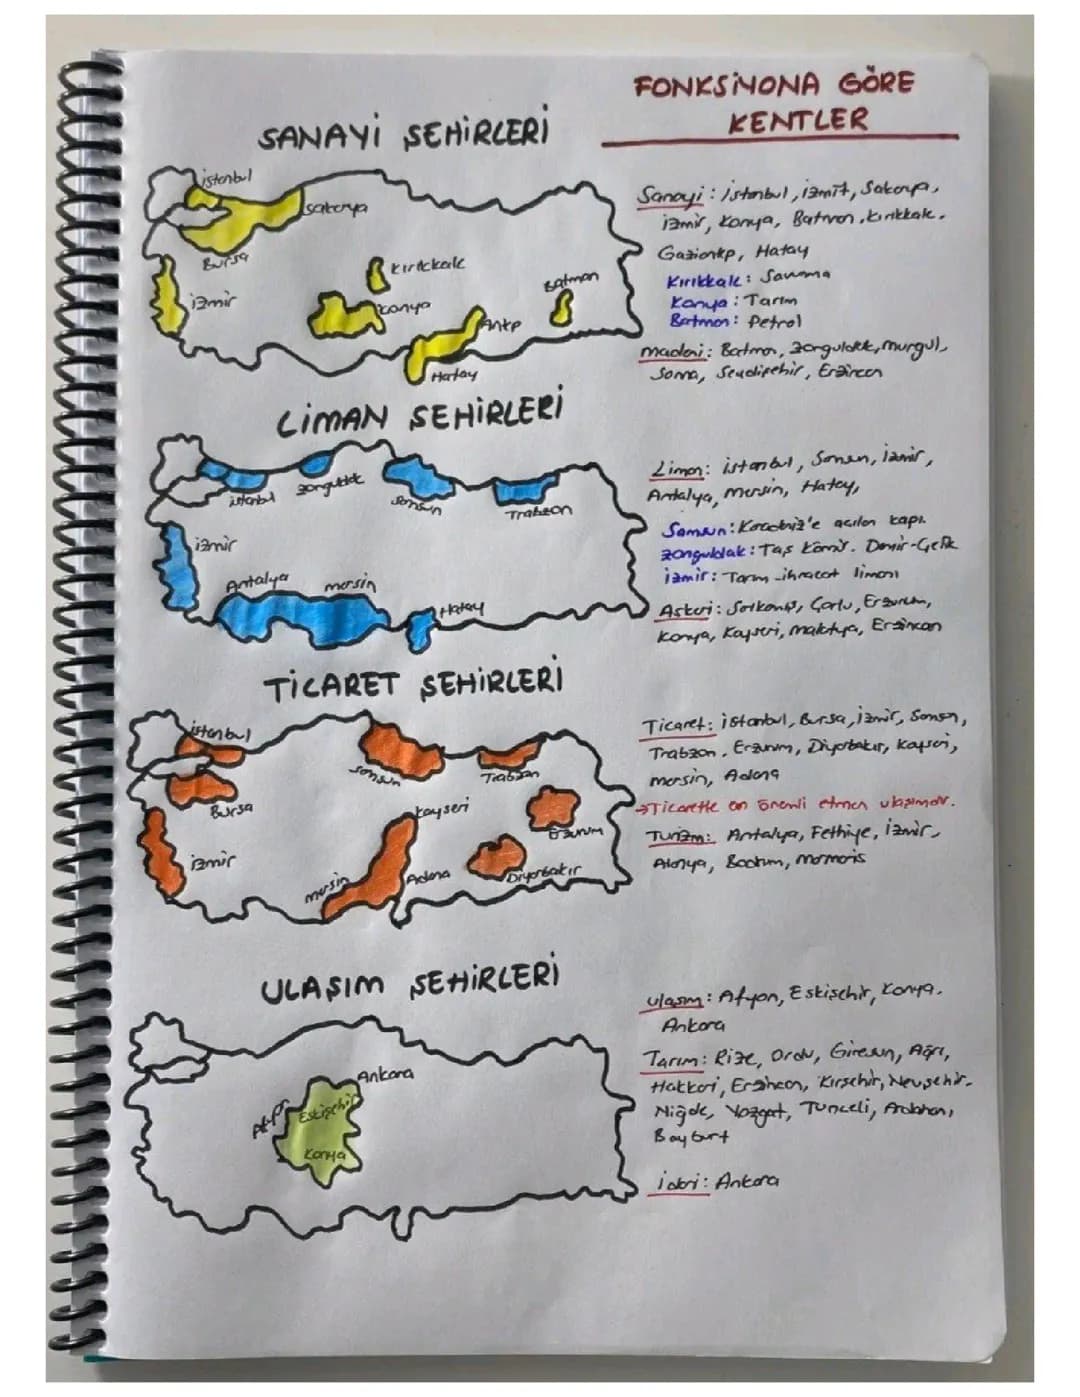 FONKSİYONA GÖRE
KENTLER
SANAYİ ŞEHİRLERİ
istanbul
sakarya
Bursa
izmir
Kırıkkale
konya
Antep
Hatay
Batman
Sanayi: istanbul, izmit, Sakarya,
izmir, Konya, Batman, kırıkkale,
Gaziantep, Hatay
Kırıkkale: Savunma
Konya: Tarım
Batman: Petrol
madeni: Batman, zonguldak, murgul,
Soma, Seydişehir, Erzincan
LİMAN ŞEHİRLERİ
istanbul
zonguldak
samsun
Trabzon
izmir
Antalya
mersin
Hatay
Liman: istanbul, Samsun, izmir,
Antalya, mersin, Hatay,
Samsun: Karadeniz'e açılan kapı.
zonguldak: Taş Kömür. Demir-Çelik
izmir: Tarım ihracat limanı
Askeri: Sarıkamış, Çorlu, Erzurum,
Konya, Kayseri, malatya, Erzincan
TİCARET ŞEHİRLERİ
istanbul
Bursa
izmir
samsun
Trabzon
kayseri
mersin
Adana
Diyarbakır
Erzurum
Ticaret: istanbul, Bursa, izmir, Samsun,
Trabzon, Erzurum, Diyarbakır, kayseri,
mersin, Adana
→Ticarette en önemli etmen ulaşımdır.
Turizm: Antalya, Fethiye, izmir,
Alanya, Bodrum, marmaris
ULAŞIM ŞEHİRLERİ
Ankara
Afyon
Eskişehir
Konya
ulaşım: Afyon, Eskişehir, Konya.
Ankara
Tarım: Rize, Ordu, Giresun, Ağrı,
Hakkari, Erzincan, Kırşehir, Nevşehir.
Niğde, Yozgat, Tunceli, Ardahan,
Bayburt
idari: Ankara